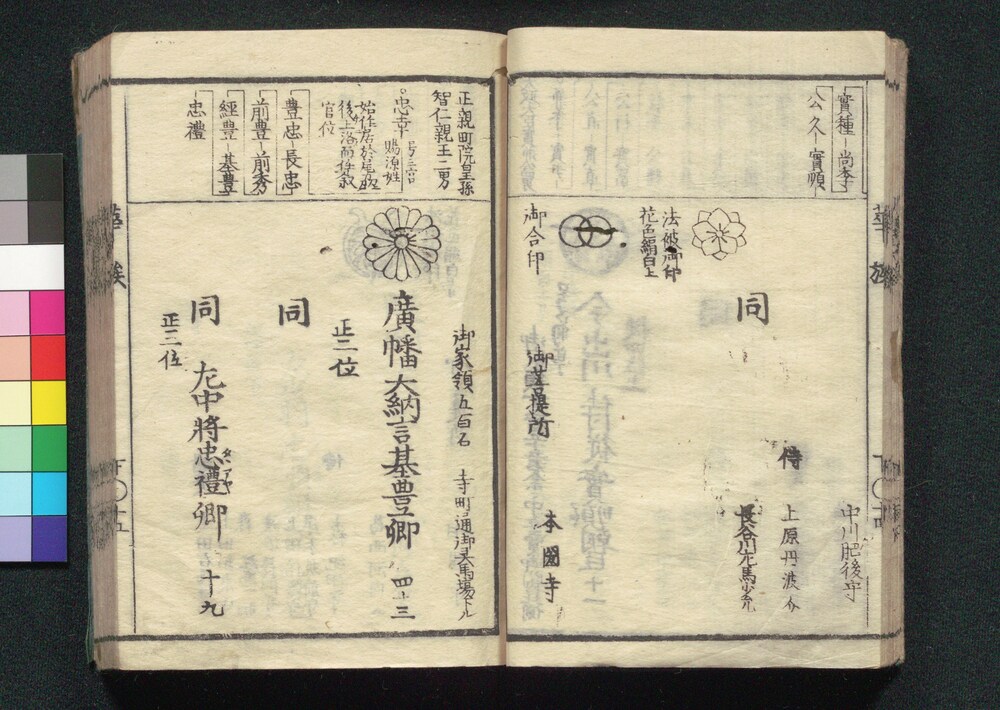 實種－尚季
公久－實順
同
侍
中川肥後守
上原丹波介
長谷川左馬少允
法被御印
花色絹白上
御合印
御菩提所
本圀寺
正親町院皇孫
智仁親王二男
忠幸
賜源姓
後上洛而任敍
官位
豊忠－長忠
前豊－前秀
經豊－基豊
忠禮
御家領五百石
寺町通御灵馬場下ル
廣幡大納言基豊卿
四十三
同
正二位
同
左中將忠禮卿
タヾアヤ
十九
正三位
華族
華族